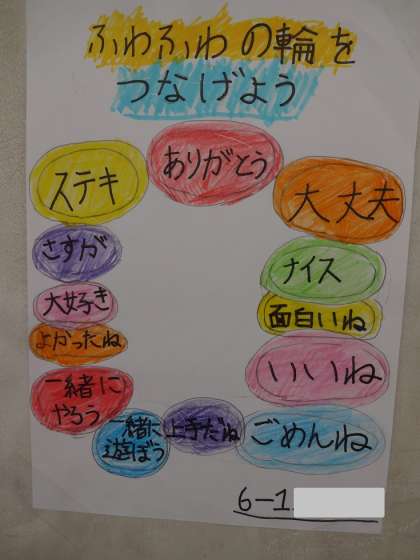 ふわふわの輪を
つなげよう
ありがとう
ステキ
大丈夫
さすが
ナイス
大好き
面白いね
よかったね
いいね
一緒に
やろう
一緒に
遊ぼう
上手だね
ごめんね
6-1